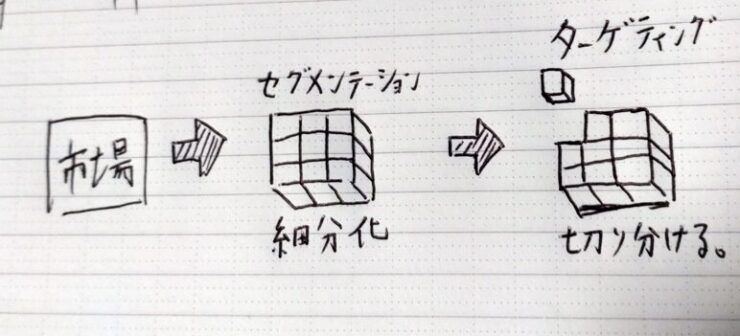 市場
セグメンテーション
細分化
ターゲティング
切り分ける。